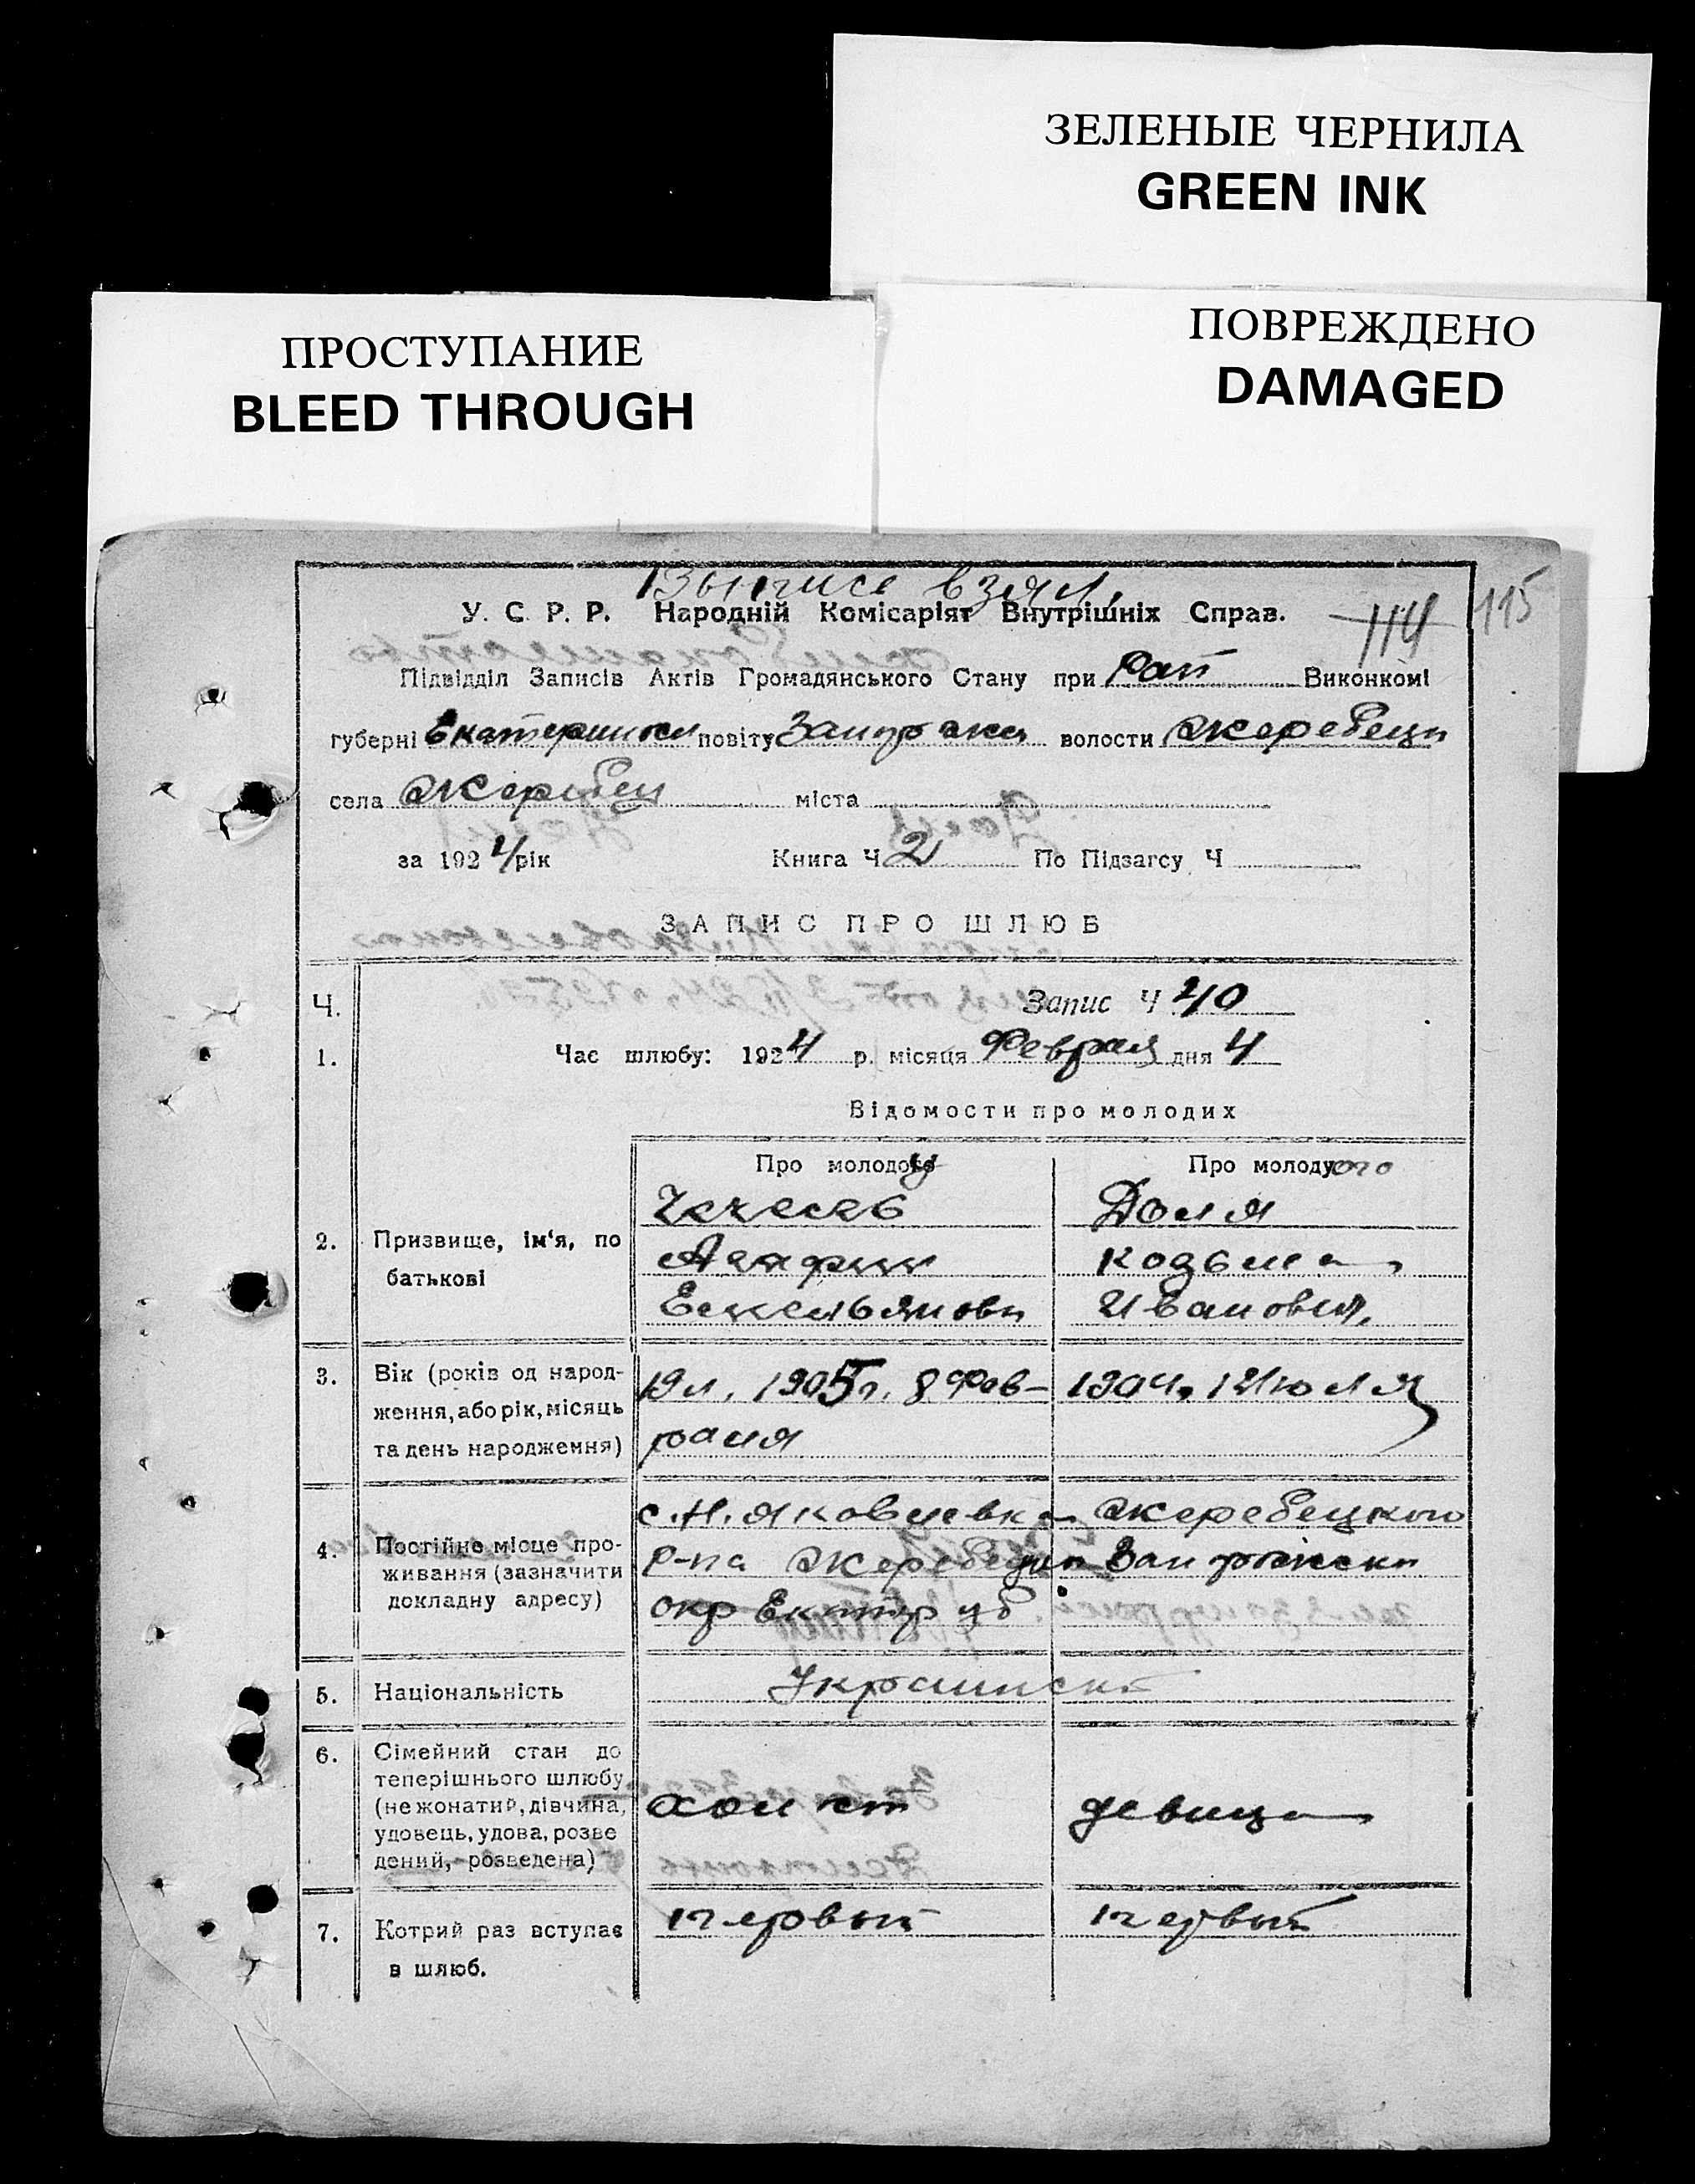 ЗЕЛЕНЫЕ ЧЕРНИЛА
GREEN INK
ПРОСТУПАНИЕ
BLEED THROUGH
ПОВРЕЖДЕНО
DAMAGED
Выпись взял.
У. С. Р. Р. Народній Комісаріят Внутрішніх Справ.
114 115
Підвідділ Записів Актів Громадянського Стану при Рай Виконкомі
губерні Екатеринсл повіту Запорожск волости Жеребецк
села Жеребец міста
за 1924 рік Книга Ч 2 По Підзагсу Ч
ЗАПИС ПРО ШЛЮБ
Ч. Запис Ч 40
1. Час шлюбу: 1924 р. місяця Февраля дня 4
Відомости про молодих
Про молоду Про молодого
Доля
2. Призвище, ім'я, по батькові
Козьма
Емельяновн Иванович.
3. Вік (років од народ-
ження, або рік, місяць
та день народження)
19 л. 1905 г. 8 Фев- 1904 г. 1 Июля
раля
4. Постійне місце про-
живання (зазначити
докладну адресу)
с. Н. Яковлевка Жеребецкого
р-на Жеребецк Запорожск
окр Екатер губ
5. Національність Украинск
6. Сімейний стан до
теперішнього шлюбу
(не жонатий, дівчина,
удовець, удова, розве
дений, розведена)
холост девица
7. Котрий раз вступає
в шлюб.
первый первый